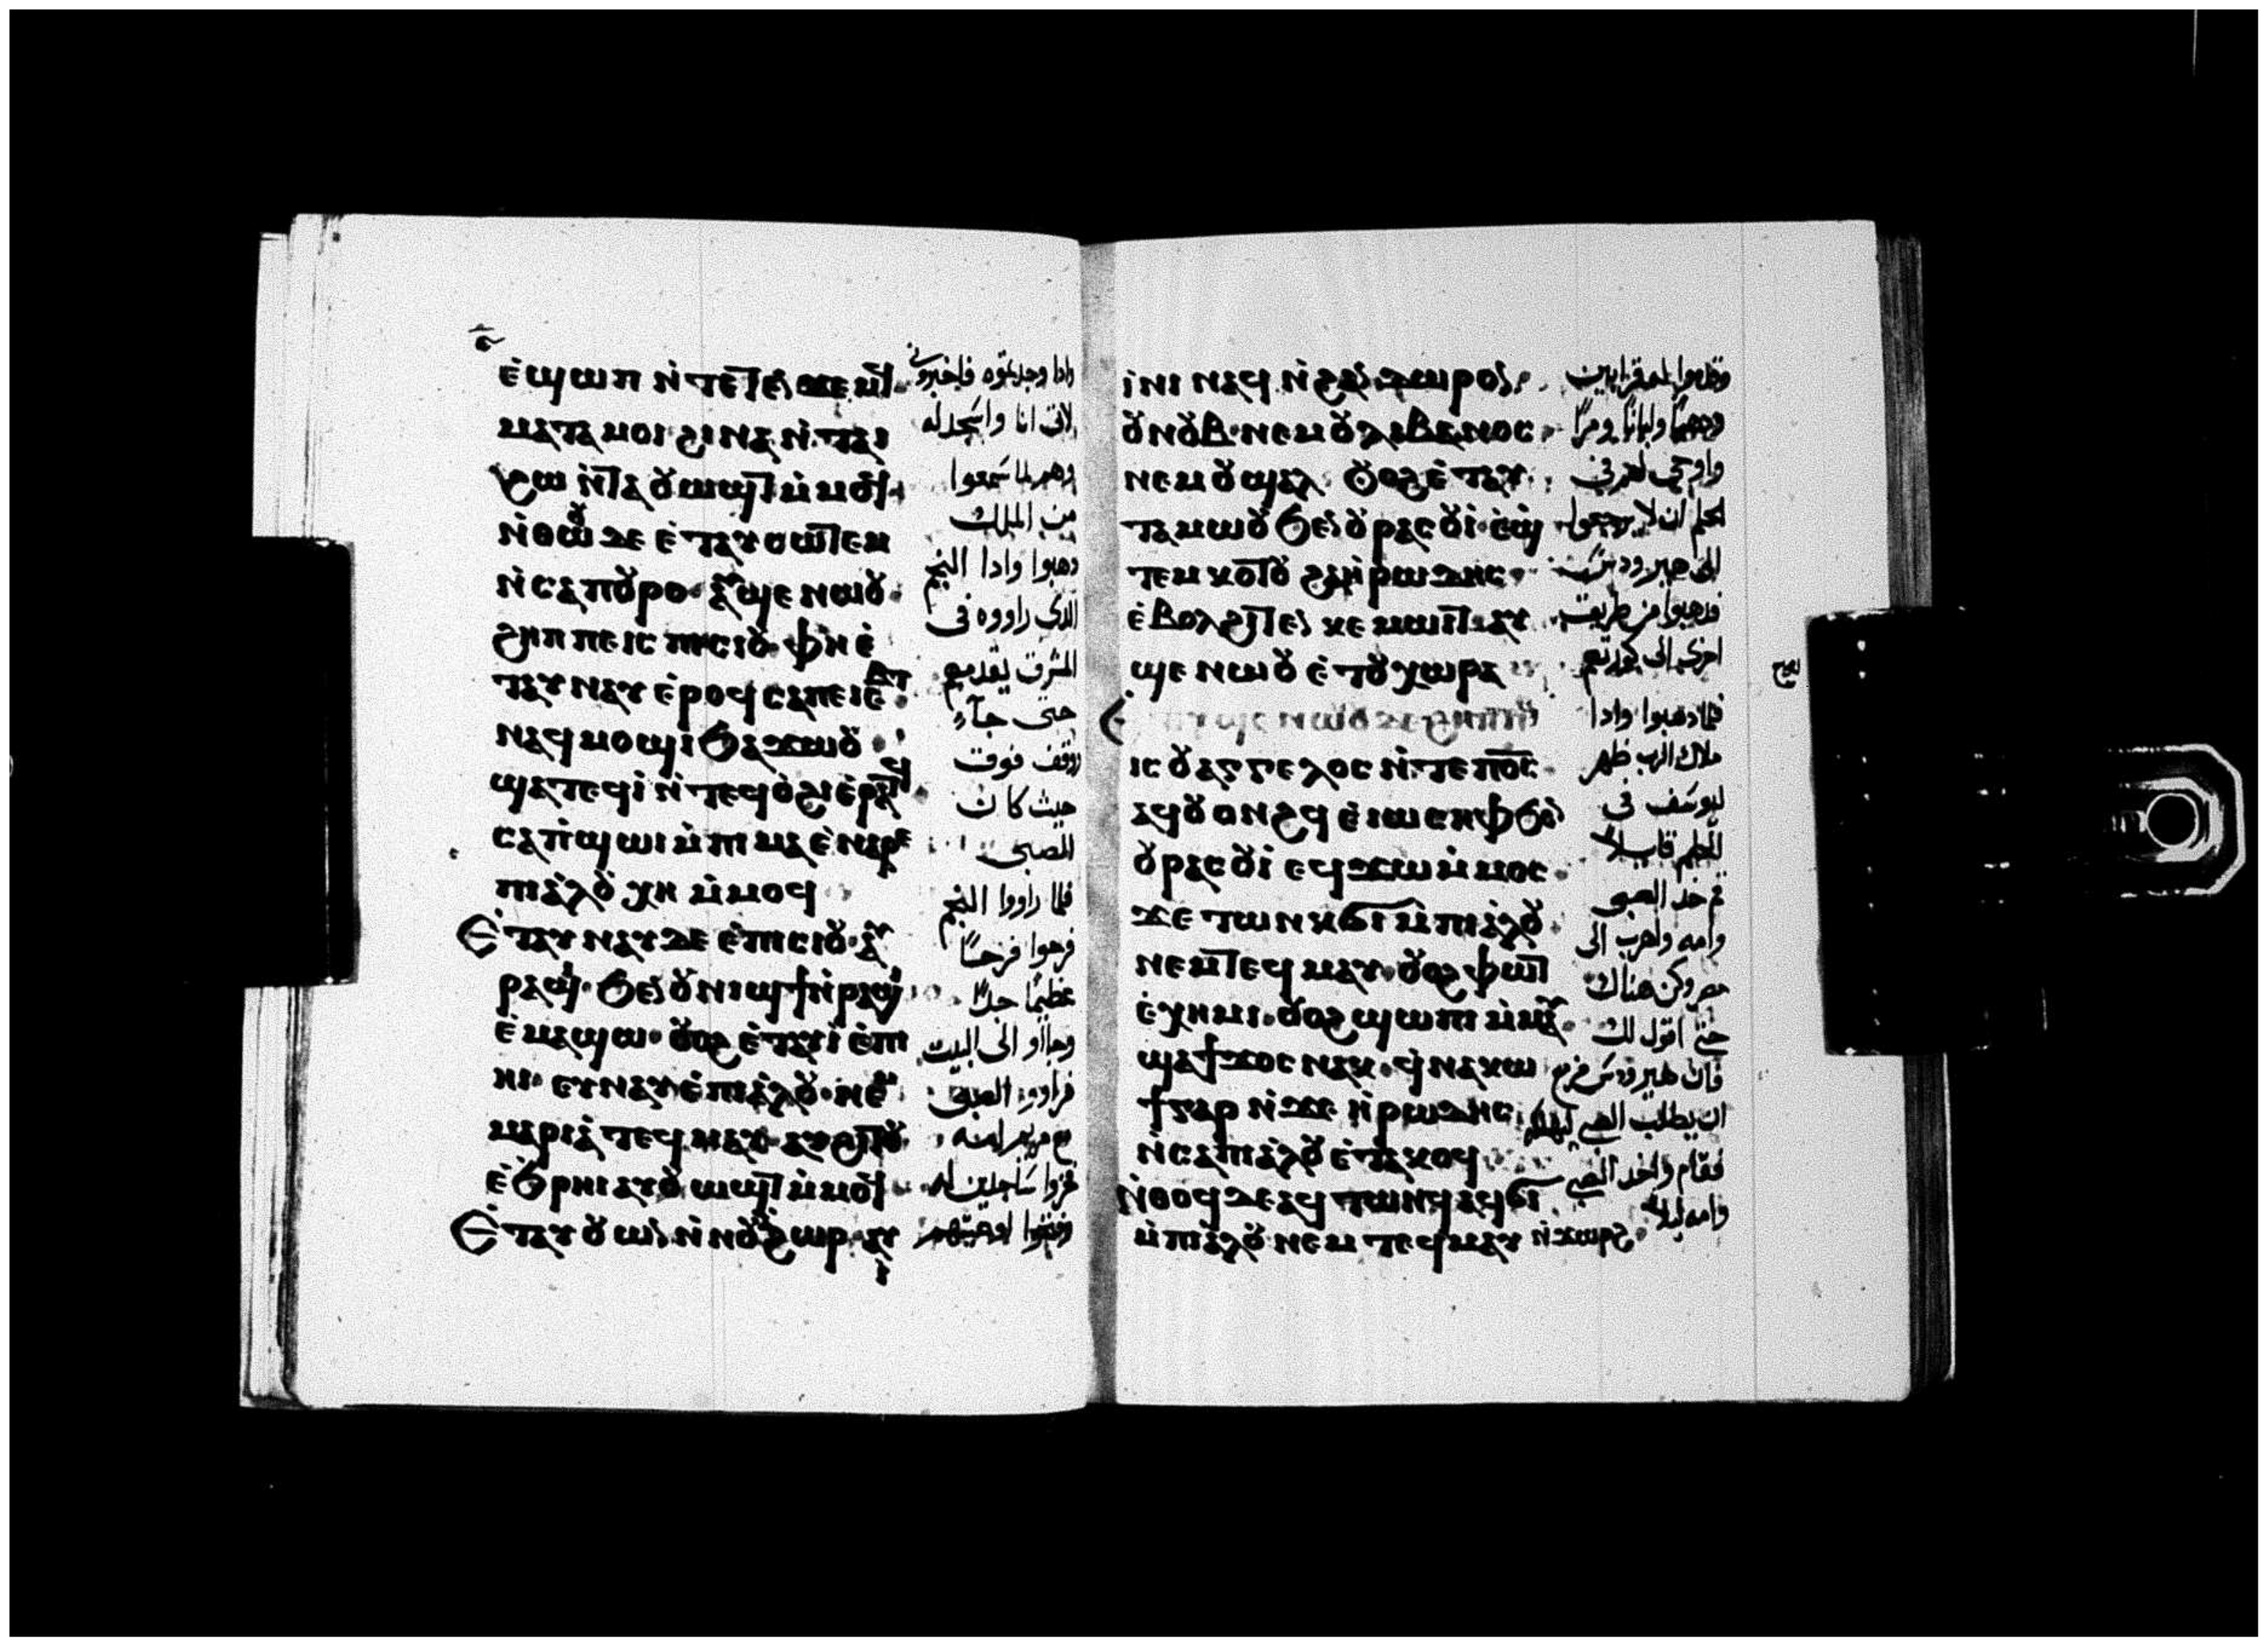 ⲉ̀ϣⲱⲡ ⲛ̀ⲧⲉⲧⲉⲛϫⲉⲙϥ
ⲙⲁⲧⲁⲙⲟⲓ ϩⲓⲛⲁ ⲛ̀ⲧⲁⲓ
ϩⲱ ⲛ̀ⲧⲁⲟⲩⲱϣⲧ ⲙ̀ⲙⲟϥ
ⲛ̀ⲑⲱⲟⲩ ⲇⲉ ⲉ̀ⲧⲁⲩⲥⲱⲧⲉⲙ
ⲛ̀ⲥⲁ ⲡⲟⲩⲣⲟ· ⲁⲩϣⲉ ⲛⲱⲟⲩ·
ϩⲏⲡⲡⲉ ⲓⲥ ⲡⲓⲥⲓⲟⲩ· ⲫⲏ ⲉ̀
ⲧⲁⲩⲛⲁⲩ ⲉ̀ⲣⲟϥ ⲥⲁⲡⲉⲓⲉⲃⲧ
ⲛⲁϥⲙⲟϣⲓ ϧⲁϫⲱⲟⲩ
ϣⲁⲧⲉϥⲓ̀ ⲛ̀ⲧⲉϥⲟ̀ϩⲓ ⲉ̀ⲣⲁⲧϥ
ⲥⲁⲡ̀ϣⲱⲓ ⲙ̀ⲡⲓⲙⲁ ⲉ̀ⲛⲁⲣⲉ
ⲡⲓⲁ̀ⲗⲟⲩ ⲭⲏ ⲙ̀ⲙⲟϥ
Ⲉ̀ⲧⲁⲩⲛⲁⲩ ⲇⲉ ⲉ̀ⲡⲓⲥⲓⲟⲩ· ⲁⲩ
ⲣⲁϣⲓ· ϧⲉⲛ ⲟⲩⲛⲓϣϯ ⲛ̀ⲣⲁϣⲓ
ⲉ̀ⲙⲁϣⲱ· ⲟⲩⲟϩ ⲉ̀ⲧⲁⲩⲓ̀ ⲉ̀ⲡⲓ
ⲏⲓ· ⲉⲩⲛⲁⲩ ⲉ̀ⲡⲓⲁ̀ⲗⲟⲩ· ⲛⲉⲙ
ⲙⲁⲣⲓⲁ̀ ⲧⲉϥⲙⲁⲩ· ⲁⲩϩⲓⲧⲟⲩ
ⲉ̀ϧⲣⲏⲓ ⲁⲩⲟⲩⲱϣⲧ ⲙ̀ⲙⲟϥ
Ⲉ̀ⲧⲁⲩⲟⲩⲱⲛ ⲛ̀ⲛⲟⲩⲁ̀ϩⲱⲣ· ⲁⲩ
ⲓ̀
وادا وجدتموه فاخبرونى
لاتى انا واسجد له
وهم لما سمعوا
من الملك
دهبوا وادا النجم
الدى راووه فى
المشرق يقدمهم
حتى جآء
ووقف فوق
حيث كان
الصبى
فلما راووا النجم
فرحوا فرحًا
عظيمًا جدًا
وجااو الى البيت
فراوو الصبى
مع مريم امه
فخروا ساجدين له
وفتحوا اوعيتهم
ⲓ̀ⲛⲓ ⲛⲁϥ ⲛ̀ϩⲁⲛⲇⲱⲣⲟⲛ·
ⲟⲩⲛⲟⲩⲃ· ⲛⲉⲙ ⲟⲩⲗⲓⲃⲁⲛⲟⲥ·
ⲛⲉⲙ ⲟⲩϣⲁⲗ ⲟⲩⲟϩ ⲉ̀ⲧⲁⲩ
ⲧⲁⲙⲱⲟⲩ ϧⲉⲛ ⲟⲩⲣⲁⲥⲟⲩⲓ̀· ⲉ̀ϣ
ⲧⲉⲙ ⲕⲟⲧⲟⲩ ϩⲁ ⲏ̀ⲣⲱⲇⲏⲥ·
ⲉ̀ⲃⲟⲗ ϩⲓⲧⲉⲛ ⲕⲉⲙⲱⲓⲧ· ⲁⲩ
ϣⲉ ⲛⲱⲟⲩ ⲉ̀ⲧⲟⲩⲭⲱⲣⲁ
ⲓⲥ ⲟⲩⲁⲅⲅⲉⲗⲟⲥ ⲛ̀ⲧⲉ ⲡⲟ̅ⲥ̅
ⲁϥⲟⲩⲟⲛϩϥ ⲉ̀ⲓⲱⲥⲏⲫ ϧⲉⲛ
ⲟⲩⲣⲁⲥⲟⲩⲓ̀ ⲉϥϫⲱ ⲙ̀ⲙⲟⲥ
ϫⲉ ⲧⲱⲛⲕ ϭⲓ ⲙ̀ⲡⲓⲁ̀ⲗⲟⲩ
ⲛⲉⲙ ⲧⲉϥⲙⲁⲩ· ⲟⲩⲟϩ ⲫⲱⲧ
ⲉ̀ⲭⲏⲙⲓ· ⲟⲩⲟϩ ϣⲱⲡⲓ ⲙ̀ⲙⲁⲩ
ϣⲁϯϫⲟⲥ ⲛⲁⲕ· ϥ̀ⲛⲁⲕⲱ
ϯ ⲅⲁⲣ ⲛ̀ϫⲉ ⲏ̀ⲣⲱⲇⲏⲥ
ⲛ̀ⲥⲁ ⲡⲓⲁ̀ⲗⲟⲩ ⲉ̀ⲧⲁⲕⲟϥ
Ⲛ̀ⲑⲟϥ ⲇⲉ ⲁϥⲧⲱⲛϥ ⲁϥϭⲓ
ⲙ̀ⲡⲓⲁ̀ⲗⲟⲩ ⲛⲉⲙ ⲧⲉϥⲙⲁⲩ ⲛ̀ϫⲱⲣϩ
وقدموا له قرابين
ودهبًا ولبانًا ومرًا
واوحى لهم فى
الحلم ان لا يرجعوا
الى هيرودس
فدهبوا من طريق
اخرى الى كورتهم
فلما دهبوا وادا
ملاك الرب ظهر
ليوسف فى
الحلم قايلا
قم خد الصبى
وامه واهرب الى
مصر وكن هناك
حتى اقول لك
فان هيرودس مزمع
ان يطلب الصبى ليهلكه
فقام واخد الصبى
وامه ليلا